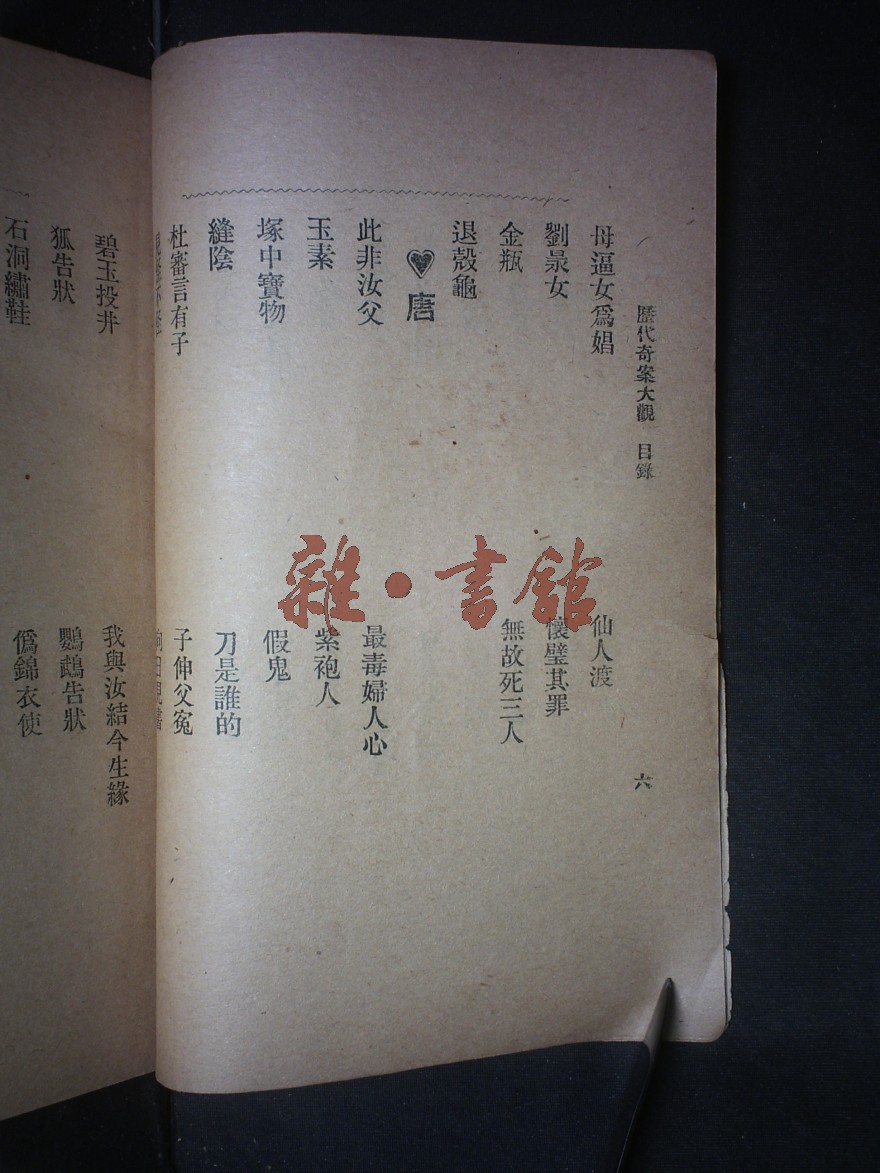 歷代奇案大觀 目錄
六
母逼女爲娼
仙人渡
劉泉女
懷璧其罪
金瓶
無故死三人
退殼龜
唐
此非汝父
最毒婦人心
玉素
紫袍人
塚中寶物
假鬼
縫陰
刀是誰的
杜審言有子
子伸父寃
碧玉投井
我與汝結今生緣
狐告狀
鸚鵡告狀
石洞繡鞋
僞錦衣使
雜·書館